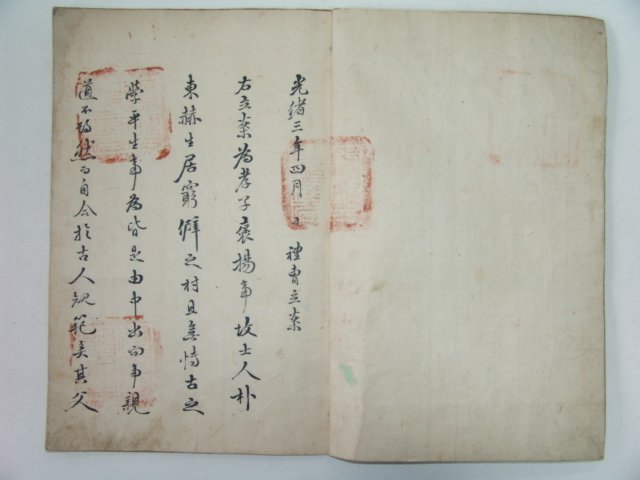 光緖三年四月 日 禮曹立案
右立案爲孝子褒揚事故士人朴
東赫生居窮僻之村且無博古之
學平生事爲皆是由中出而事親
道不期然而自合於古人規範矣其父